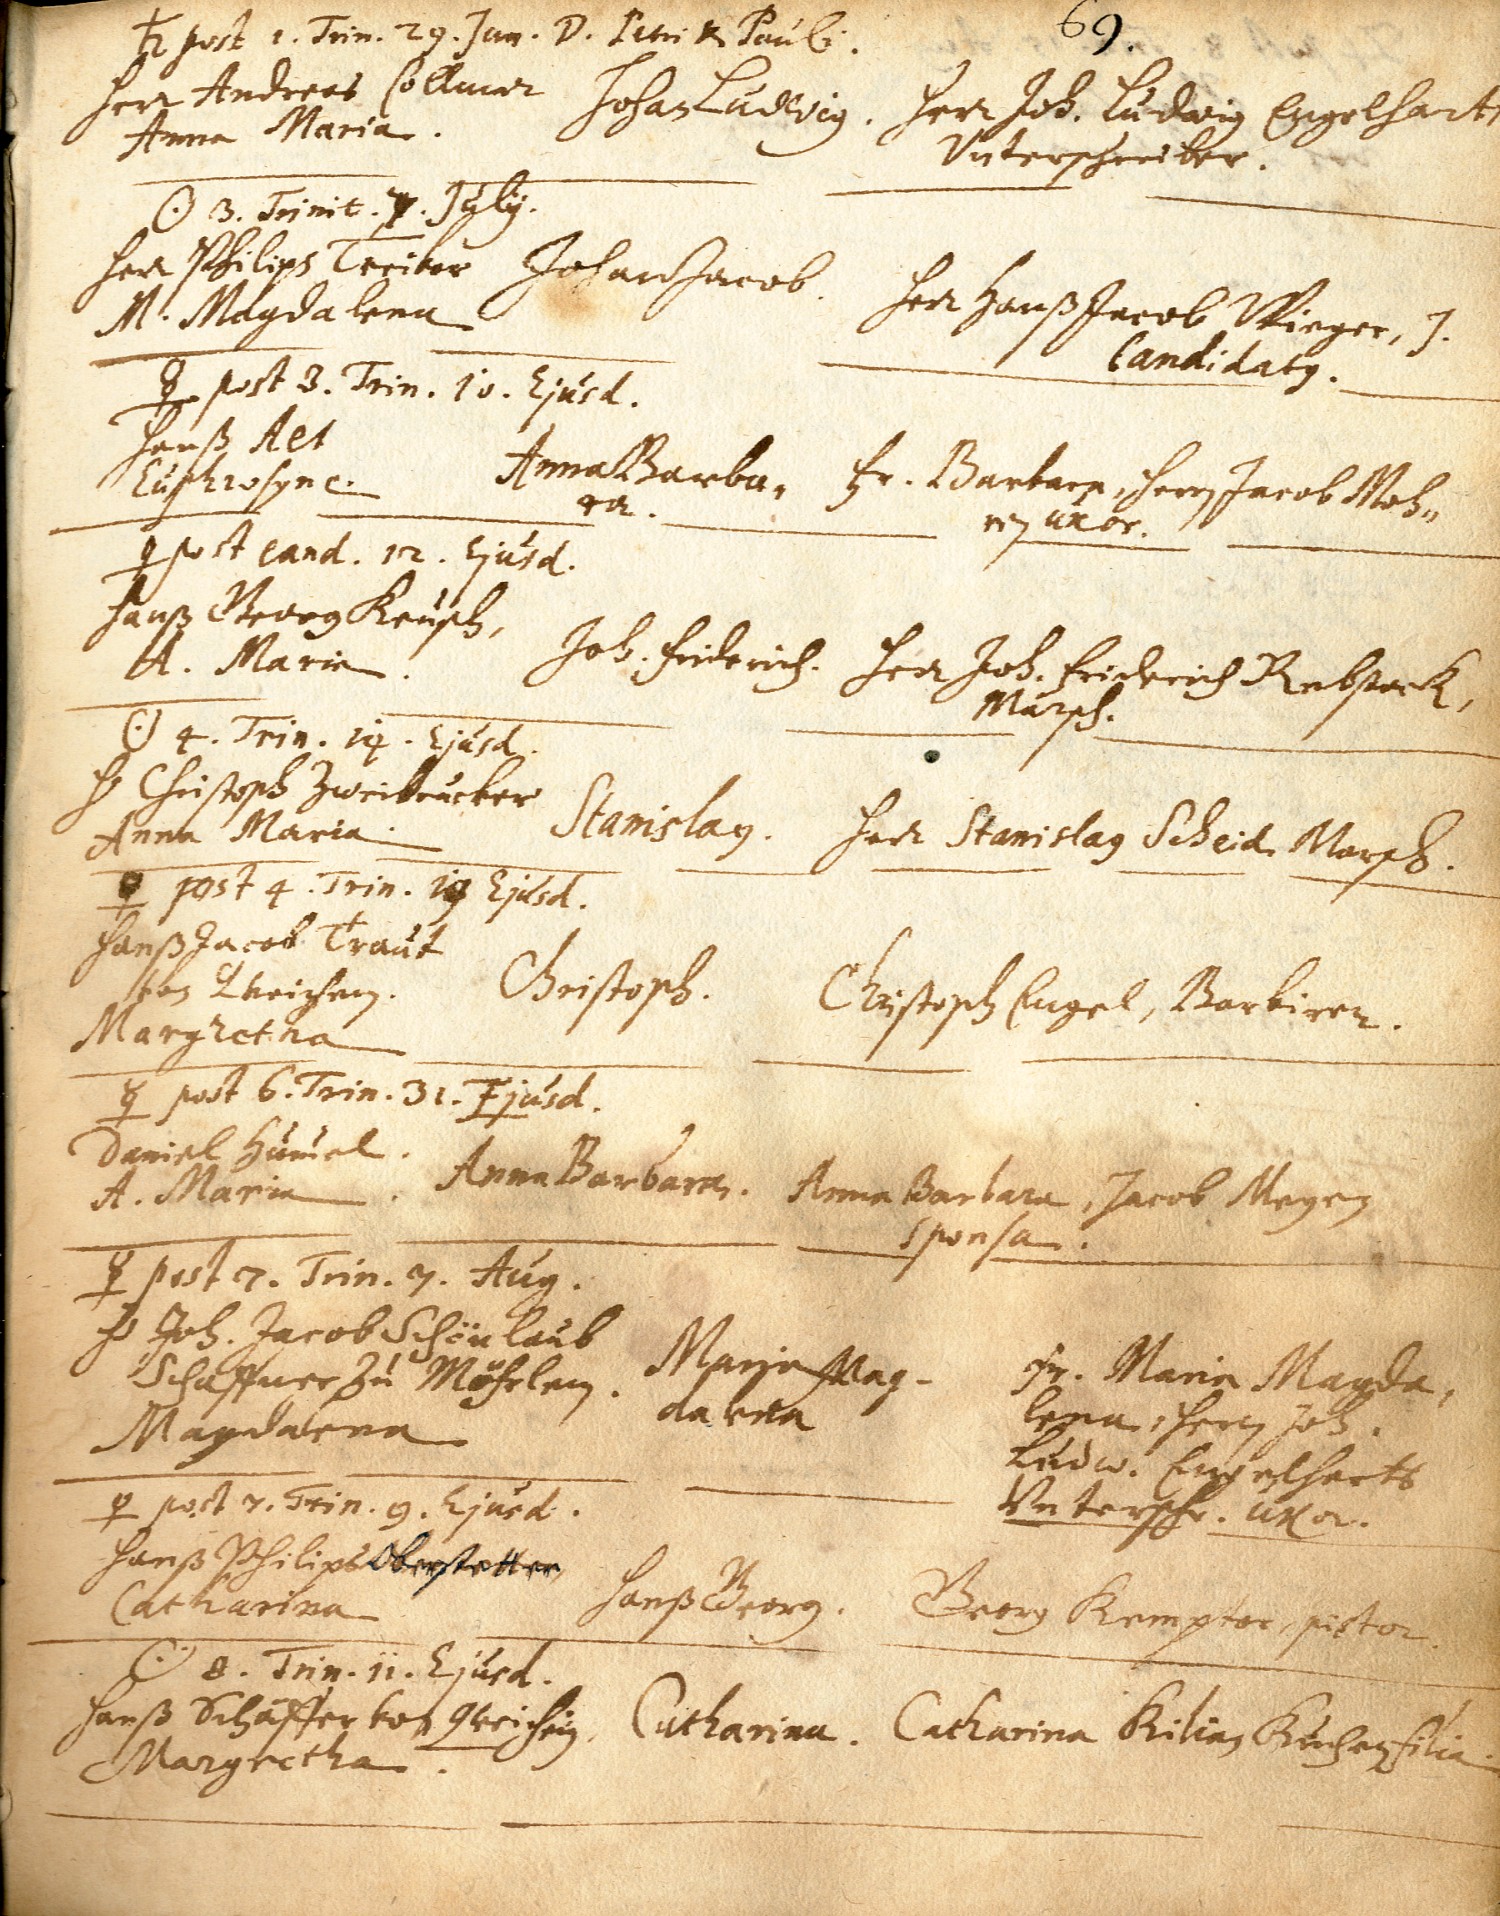 69.
♄ post 1. Trin. 29. Jun. D. Petri & Pauli.
Herr Andreas Collmar Johan Ludwig. Herr Joh. Ludwig Engelhart,
Anna Maria. Unterschreiber.
☉ 3. Trinit. 7. July.
Herr Philips Treiber Johan Jacob. Herr Hanß Jacob Wieger, J.
M. Magdalena Candidatus.
☿ post 3. Trin. 10. Ejusd.
Hanß Alt Anna Barba, Fr. Barbara, Herrn Jacob Moh,,
Euphrosyne. ra. ren uxor.
♀ post eand. 12. Ejusd.
Hanß Georg Keusch, Joh. Friderich. Herr Joh. Friderich Rebstock,
A. Maria. Mursch.
☉ 4. Trin. 14. Ejusd.
H. Christoph Zweibrucker Stanislaus. Herr Stanislaus Scheid, Morsch.
Anna Maria.
♀ post 4. Trin. 19 Ejusd.
Hanß Jacob Traut Christoph. Christoph Engel, Barbirer.
von
Margretha
☿ post 6. Trin. 31. Ejusd.
Daniel Hummel. Anna Barbara. Anna Barbara, Jacob Meyen
A. Maria. sponsa.
☿ post 7. Trin. 7. Aug.
H. Joh. Jacob Schönlaub Maria Mag- Fr. Maria Magda,
Schaffner zu Möhrlen. dalena lena, Herrn Joh.
Magdalena Ludw. Engelharts
Unterschr. uxor.
♀ post 7. Trin. 9. Ejusd.
Hanß Philips Oberstetter Hanß Georg. Georg Kempter, pistor.
Catharina
☉ 8. Trin. 11. Ejusd.
Hanß Schäffer von Catharina. Catharina Kilian Kuchen filia.
Margretha.